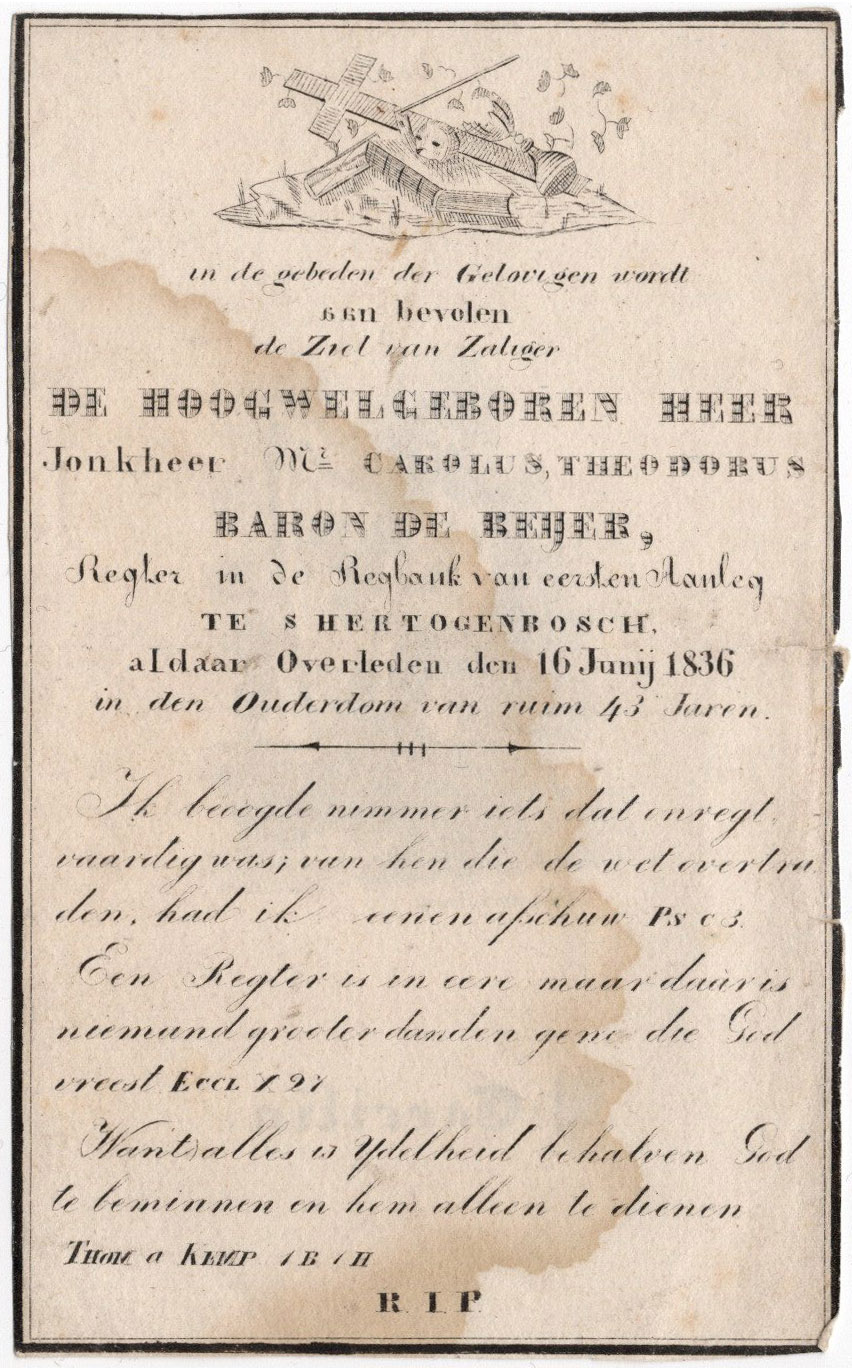 in de gebeden der Gelovigen wordt
aan bevolen
de Ziel van Zaliger
DE HOOGWELGEBOREN HEER
Jonkheer Mr. CAROLUS, THEODORUS
BARON DE BEIJER,
Regter in de Regbank van eersten Aanleg
TE S HERTOGENBOSCH,
aldaar Overleden den 16 Junij 1836
in den Ouderdom van ruim 43 Jaren.
Ik beoogde nimmer iets dat onregt,
vaardig was; van hen die de wet overtra
den, had ik eenen afschuw Ps c 3.
Een Regter is in eere maar daar is
niemand grooter dan den gene die God
vreest ECCL X 27
Want alles is Ydelheid behalven God
te beminnen en hem alleen te dienen
THOM a KEMP 1 B 1 H
R I P